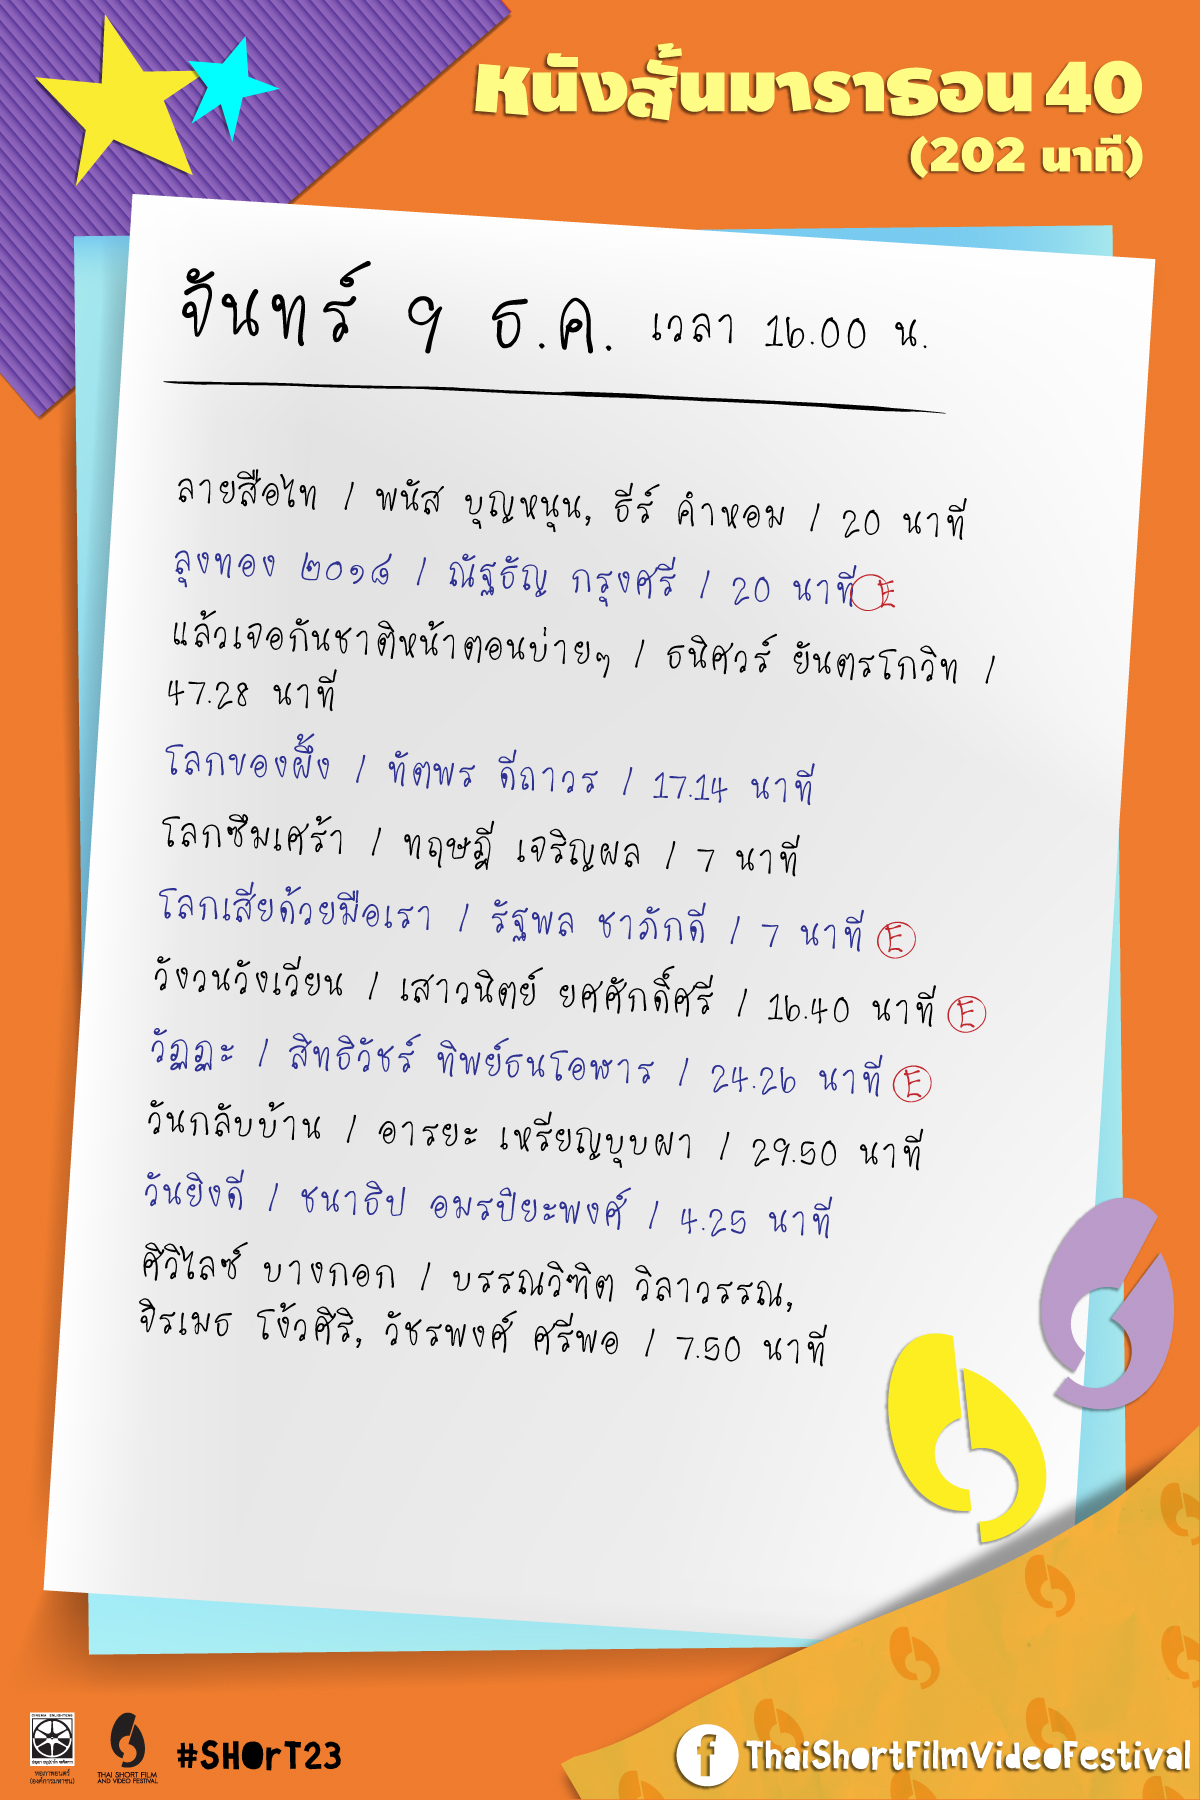 หนังสั้นมาราธอน 40
(202 นาที)
จันทร์ 9 ธ.ค. เวลา 16.00 น.
ลายสือไท / พนัส บุญหนุน, ธีร์ คำหอม / 20 นาที
ลุงทอง ๒๐๑๘ / ณัฐธัญ กรุงศรี / 20 นาที E
แล้วเจอกันชาติหน้าตอนบ่ายๆ / ธนิศวร์ ยันตรโกวิท /
47.28 นาที
โลกของผึ้ง / ทัตพร ดีถาวร / 17.14 นาที
โลกซึมเศร้า / ทฤษฎี เจริญผล / 7 นาที
โลกเสียด้วยมือเรา / รัฐพล ชาภักดี / 7 นาที E
วังวนวังเวียน / เสาวนิตย์ ยศศักดิ์ศรี / 16.40 นาที E
วัฏฏะ / สิทธิวัชร์ ทิพย์ธนโอฬาร / 24.26 นาที E
วันกลับบ้าน / อารยะ เหรียญบุบผา / 29.50 นาที
วันยิงดี / ชนาธิป อมรปิยะพงศ์ / 4.25 นาที
ศิวิไลซ์ บางกอก / บรรณวิฑิต วิลาวรรณ,
จิรเมธ โง้วศิริ, วัชรพงศ์ ศรีพอ / 7.50 นาที
หอภาพยนตร์
(องค์การมหาชน)
THAI SHORT FILM
AND VIDEO FESTIVAL
#SHOrT23
f ThaiShortFilmVideoFestival